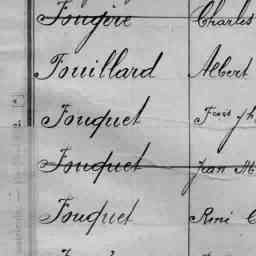 Fougère Charles
Fouillard Albert
Fouquet
Fouquet Jean
Fouquet René